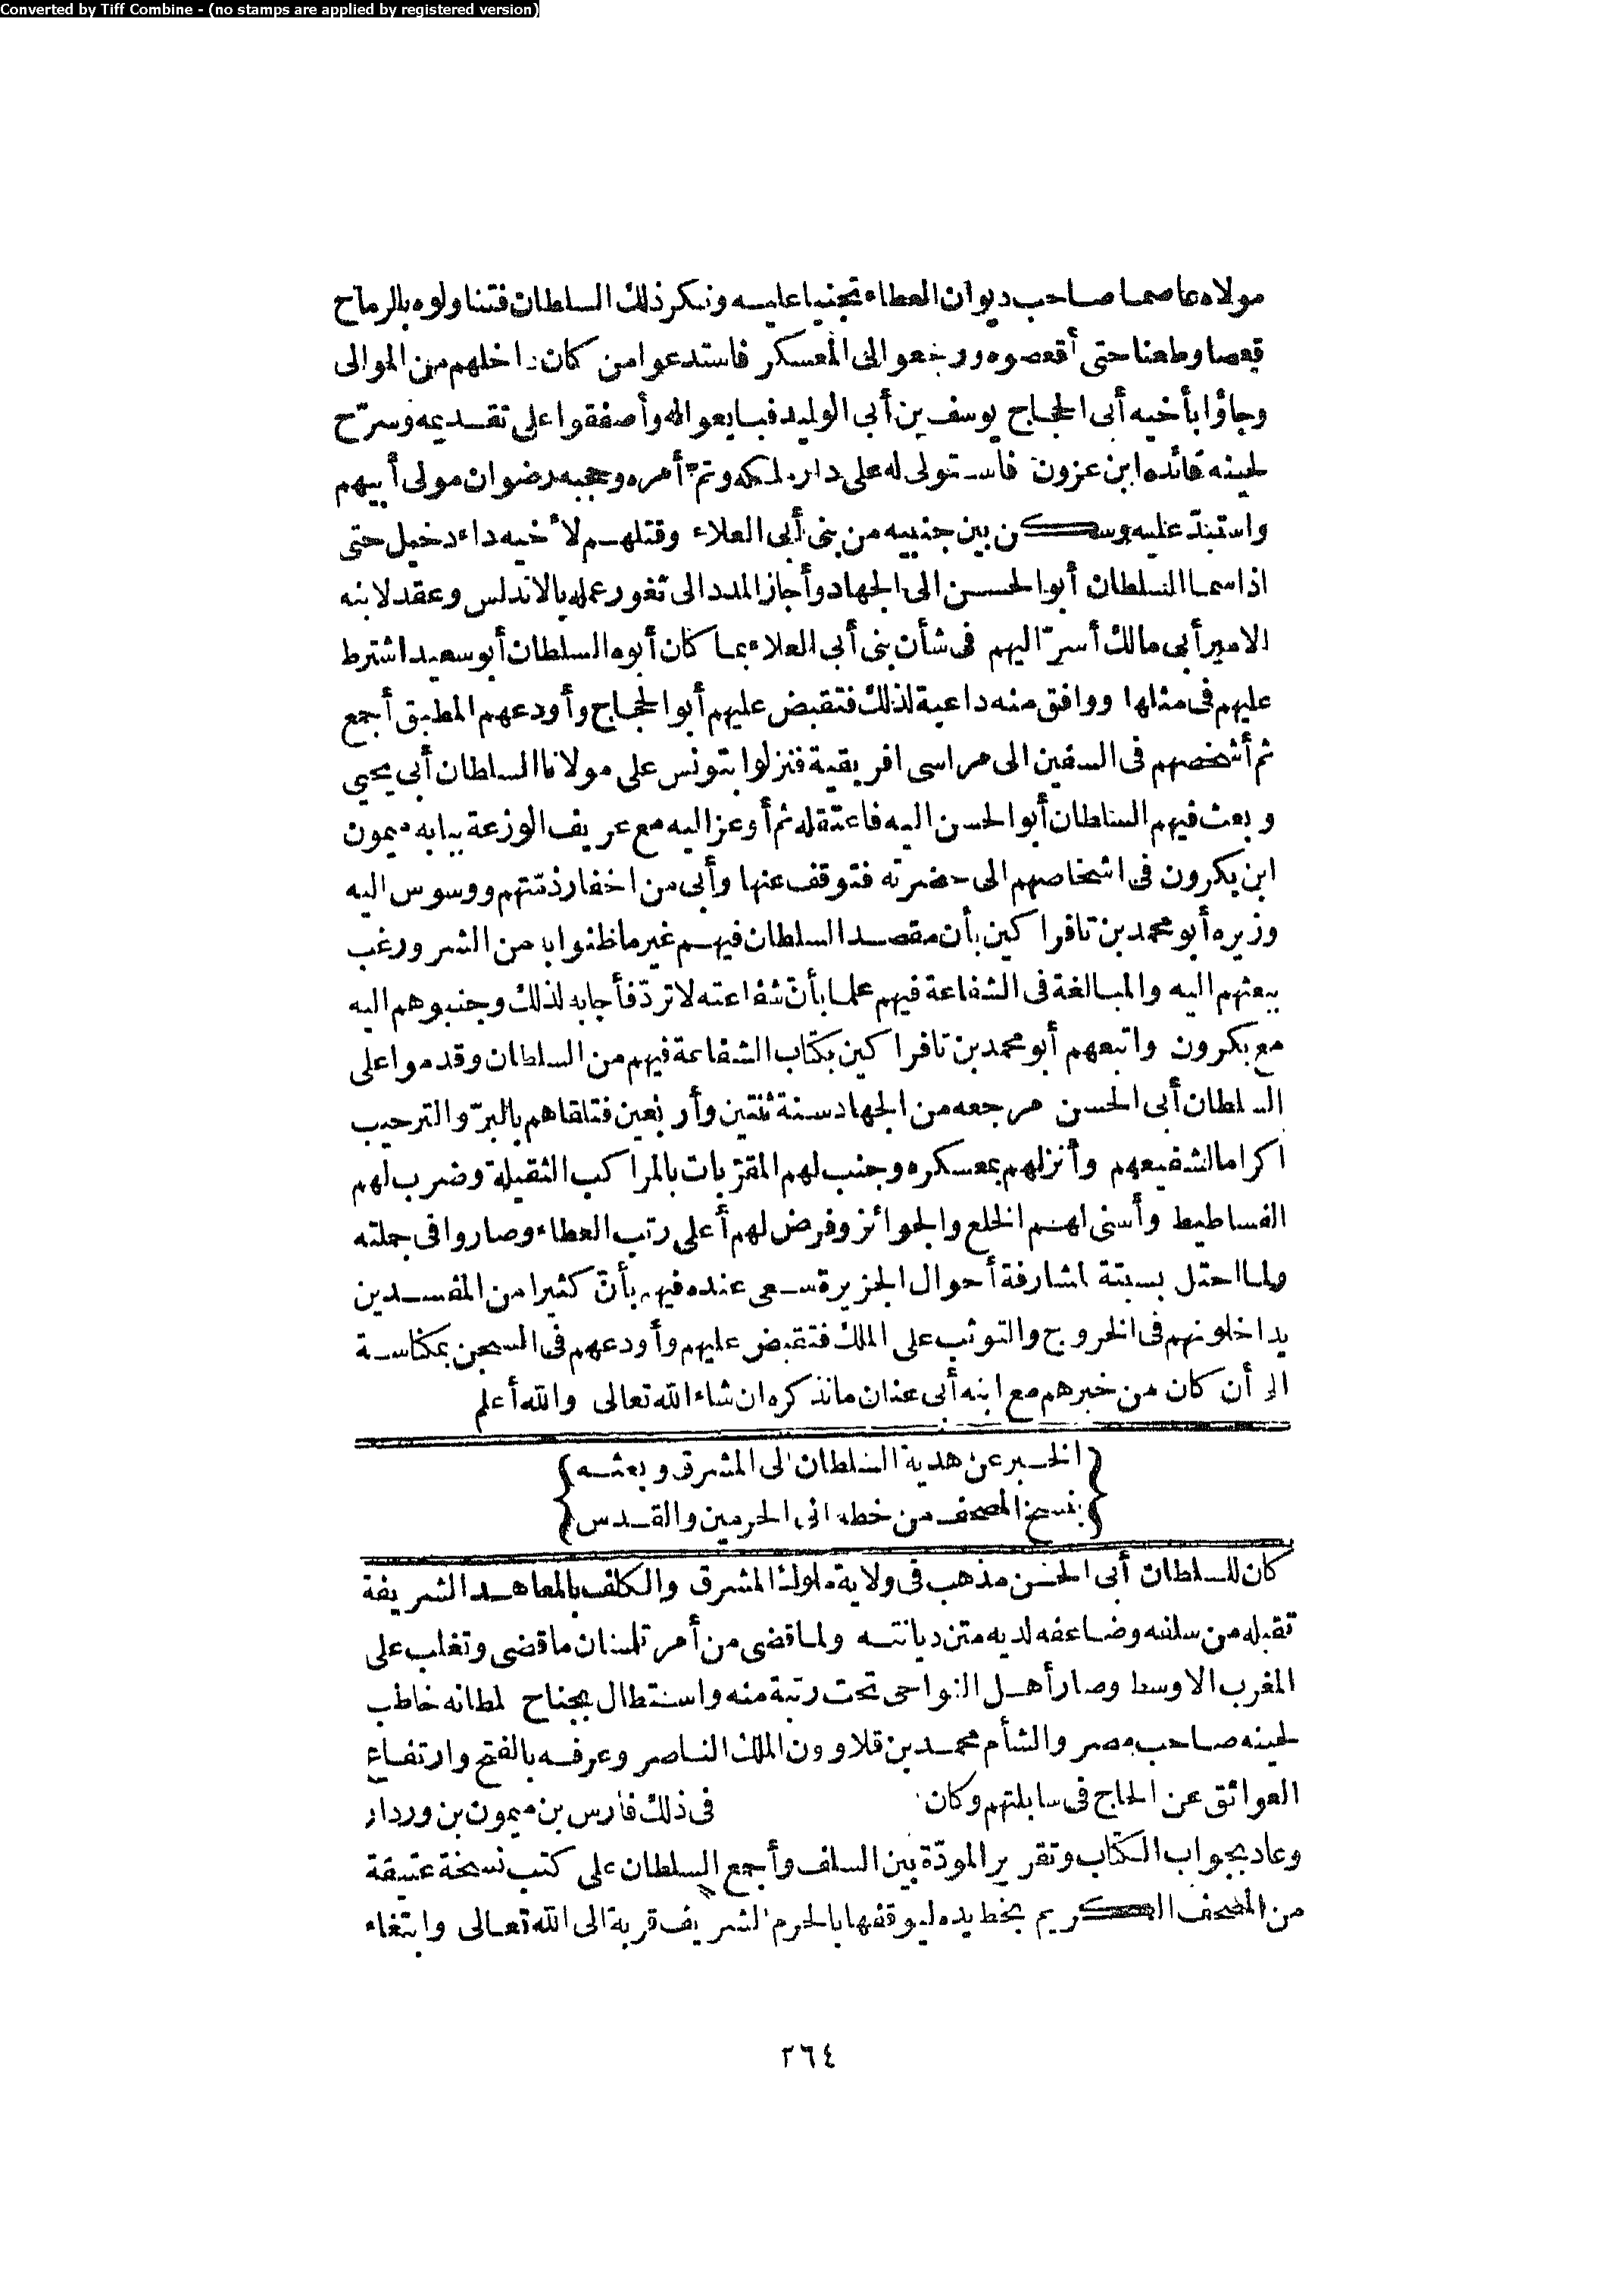 Converted by Tiff Combine - (no stamps are applied by registered version)
مولاه عاصما صاحب ديوان العطاء تجنيا عليه ونكر ذلك السلطان فتناولوه بالرماح
قعصا وطعنا حتى أقعصوه ورجعوا الى المعسكر فاستدعوا من كان داخلهم من الموالى
وجاؤا بأخيه أبى الحجاج يوسف بن أبى الوليد فبايعوا له وأصفقوا على تقديمه وسرّح
لحينه قائده ابن عزون فاستولى له على دار ملكه وتمّ أمره وحجبه رضوان مولى أبيهم
واستبدّ عليه وسكن بين جنبيه من بنى أبى العلاء وقتلهم لأخيه داء دخيل حتى
اذا سما السلطان أبو الحسن الى الجهاد وأجاز المدد الى ثغور عمله بالاندلس وعقد لابنه
الامير أبى مالك أسرّ اليهم فى شأن بنى أبى العلاء بما كان أبوه السلطان أبو سعيد اشترط
عليهم فى مثلها ووافق منه داعية لذلك فتقبض عليهم أبو الحجاج وأودعهم المطبق أجمع
ثم أشخصهم فى السفين الى مراسى افريقية فنزلوا بتونس على مولانا السلطان أبى يحيى
وبعث فيهم السلطان أبو الحسن اليه فاعتقله ثم أوعز اليه مع عريف الوزعة ببابه ميمون
ابن بكرون فى اشخاصهم الى حضرته فتوقف عنها وأبى من اخفار ذمّتهم ووسوس اليه
وزيره أبو محمد بن تافراكين بأن مقصد السلطان فيهم غير ما ظنوا به من الشر ورغب
ببعثهم اليه والمبالغة فى الشفاعة فيهم علما بأنّ شفاعته لا تردّ فأجابه لذلك وجنبوهم اليه
مع بكرون واتبعهم أبو محمد بن تافراكين بكتاب الشفاعة فيهم من السلطان وقدموا على
السلطان أبى الحسن مرجعه من الجهاد سنة ثنتين وأربعين فتلقاهم بالبرّ والترحيب
اكراما لشفيعهم وأنزلهم بمعسكره وجنب لهم المقرّبات بالمراكب الثقيلة وضرب لهم
الفساطيط وأسنى لهم الخلع والجوائز وفرض لهم أعلى رتب العطاء وصاروا فى جملته
ولما احتل بسبتة لمشارفة أحوال الجزيرة سعى عنده فيهم بأنّ كثيرا من المفسدين
يداخلونهم فى الخروج والتوثب على الملك فتقبض عليهم وأودعهم فى السجن بمكناسة
الى أن كان من خبرهم مع ابنه أبى عنان ما نذكره ان شاء الله تعالى والله أعلم
{الخبر عن هدية السلطان الى المشرق وبعثه}
{بنسخ المصحف من خطه الى الحرمين والقدس}
كان للسلطان أبى الحسن مذهب فى ولاية ملوك المشرق والكلف بالمعاهد الشريفة
تقبله من سلفه وضاعفه لديه متن ديانته ولما قضى من أمر تلمسان ما قضى وتغلب على
المغرب الاوسط وصار أهل النواحى تحت ربقة منه واستطال بجناح سلطانه خاطب
لحينه صاحب مصر والشأم محمد بن قلاوون الملك الناصر وعرفه بالفتح وارتفاع
العوائق عن الحاج فى سابلتهم وكان فى ذلك فارس بن ميمون بن وردار
وعاد بجواب الكتاب وتقرير المودّة بين السلف وأجمع السلطان على كتب نسخة عتيقة
من المصحف الكريم بخط يده ليوقفها بالحرم الشريف قربة الى الله تعالى وابتغاء
٢٦٤